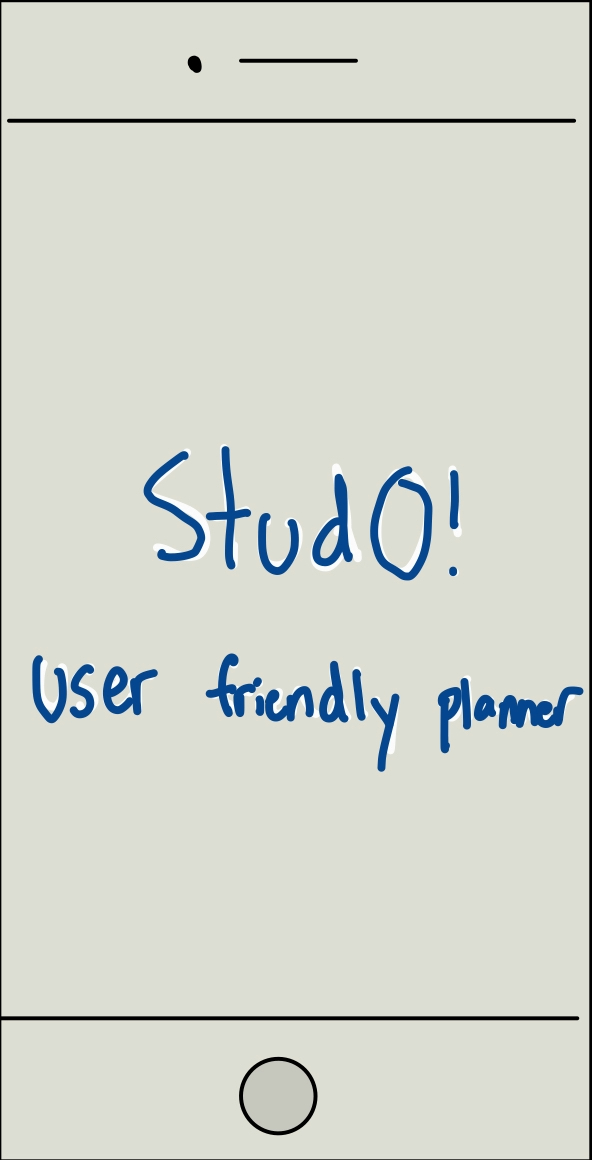 StudO!
User friendly planner